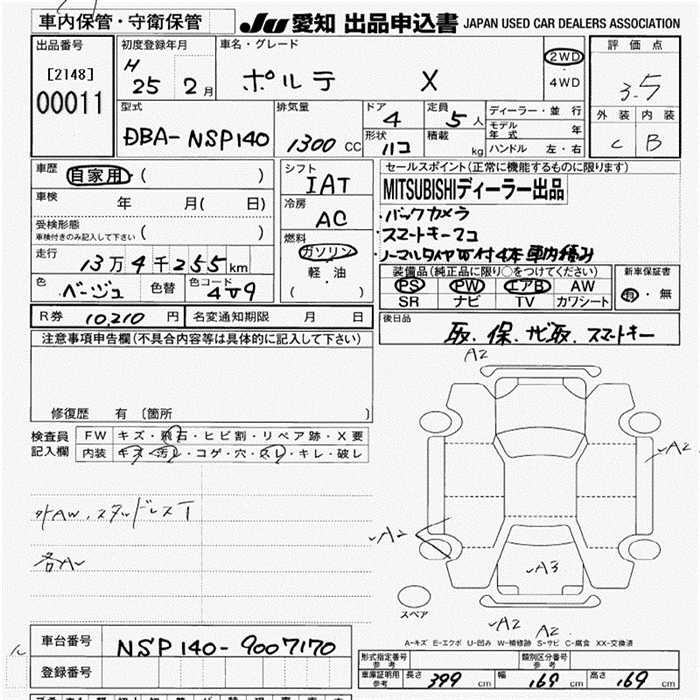 車内保管・守衛保管
JU 愛知 出品申込書 JAPAN USED CAR DEALERS ASSOCIATION
出品番号
[2148]
00011
初度登録年月
H
25 2月
車名・グレード
ポルテ X
2WD
・
4WD
評価点
3.5
外装 内装
C B
型式
DBA-NSP140
排気量
1300 CC
ドア
4
定員
5人
形状
ハコ
積載
kg
ディーラー・並行
モデル年式 年
ハンドル 左・右
車歴
自家用・( )
車検 年 月( 日)
受検形態
車検付きのみ記入して下さい ( )
走行
13万4千255km
色
ベージュ
色替
色コード
4V9
シフト
IAT
冷房
AC
燃料
ガソリン
軽・油
( )
セールスポイント(正常に機能するものに限ります)
MITSUBISHIディーラー出品
・バックカメラ
・スマートキー2コ
・ノーマルタイヤW付4本車内積み
装備品(純正品に限り○をつけてください)
PS PW エアB AW
SR ナビ TV カワシート
新車保証書
有・無
R券 10,210 円
名変通知期限 月 日
後日品
取.保.ナビ取.スマートキー
注意事項申告欄(不具合内容等は具体的に記入して下さい)
修復歴 有(箇所 )
検査員
記入欄
FW キズ・飛石・ヒビ割・リペア跡・X要
内装 キズ・汚レ・コゲ・穴・スレ・キレ・破レ
外AW.スタッドレスT
各A
A2
A2
A2
A3
A2
A2
スペア
A-キズ E-エクボ U-凹み W-補修跡 S-サビ C-腐食 XX-交換済
車台番号
NSP140-9007170
登録番号
形式指定番号
参考
類別区分番号
参考
車庫証明用
参考
長さ 399 cm 幅 169 cm 高さ 169 cm